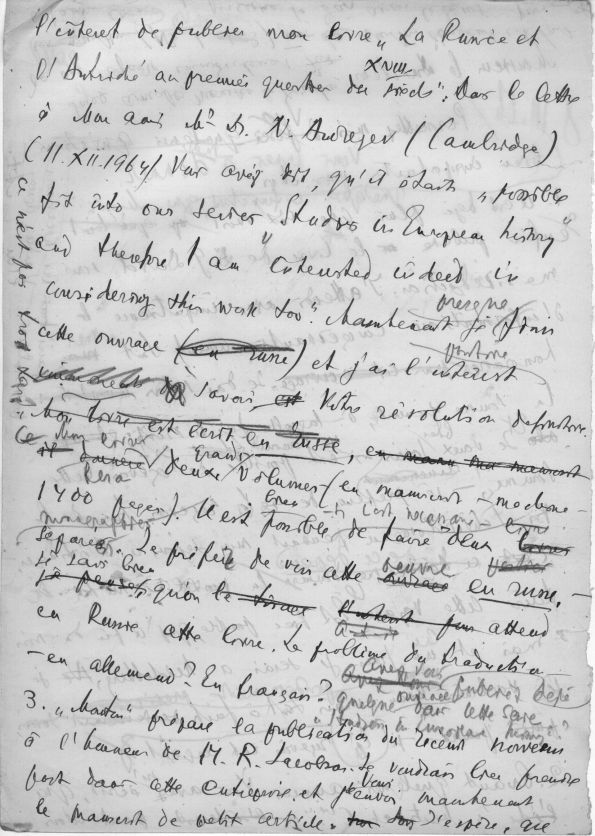 l'intéret de publier mon livre „La Russie et
l'Autriche au premier quartier du XVIII siècle". Dans la lettre
à Mon ami Mr Dr. N. Andreyev (Cambridge)
(11.XII.1964) Vous avéz dit, qu'il était „possible
fit into our series "Studies in European history"
and therefore I am interested indeed in
considering this work too". Maintenant je finis presque
cette ouvrage (en russe) et j'ai l'intérest
savoir Votre résolution definitive.
Mon livre est écrit en russe, en manu
deux grands volumes (en manuscript - machine -
1400 pages). Il est possible de faire deux livres
separés. Je préfère de voir cette oeuvre en russe. -
qu'on attend
en Russie cette livre. Le problème du traduction
- en allemand? En français? Avez Vous publiéz déjà
quelque ouvrage dans cette serie
European history"?
3. „Mouton" prépare la publication du recueil nouveau
à l'honneur de M. R. Jacobson. Je voudrais bien prendre
part dans cette entreprise et j'envoi Vous maintenant
le manuscrit de petit article. J'espère, que
ce n'est pas trop tard.